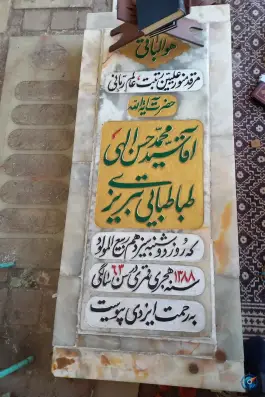 هو الباقی
مرقد منور علیین رتبت عالم ربانی
حضرت آیة الله
آقا سید محمد حسن الهی
طباطبایی تبریزی
که روز دوشنبه سیزدهم ربیع المولود
سنه ۱۳۸۸ هجری قمری در سن ۶۳ سالگی
به رحمت ایزدی پیوست